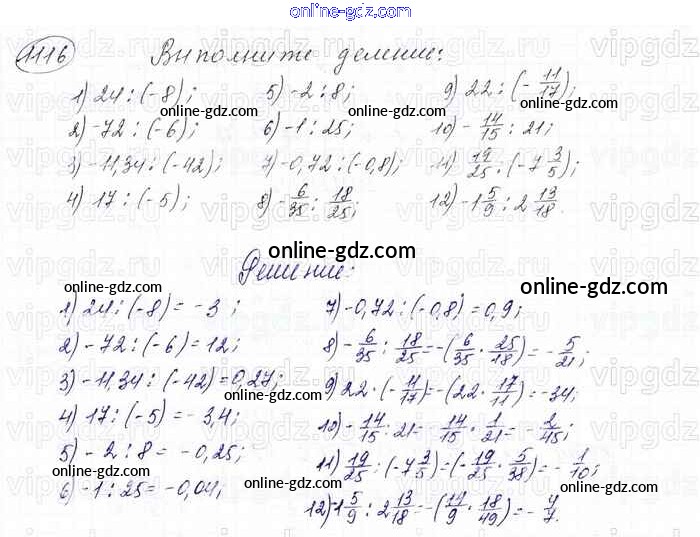 online-gdz.com
1116 Выполните деление:
1) 24 : (-8); 5) -2 : 8; 9) 22 : (-11/17);
2) -72 : (-6); 6) -1 : 25; 10) -14/15 : 21;
3) -11,34 : (-42); 7) -0,72 : (-0,8); 11) 19/25 : (-7 3/5);
4) 17 : (-5); 8) -6/35 : 18/25; 12) -1 5/9 : 2 13/18.
Решение:
1) 24 : (-8) = -3;
2) -72 : (-6) = 12;
3) -11,34 : (-42) = 0,27;
4) 17 : (-5) = -3,4;
5) -2 : 8 = -0,25;
6) -1 : 25 = -0,04;
7) -0,72 : (-0,8) = 0,9;
8) -6/35 : 18/25 = -(6/35 · 25/18) = -5/21;
9) 22 · (-11/17) = -(22 · 17/11) = -34;
10) -14/15 : 21 = -14/15 · 1/21 = -2/45;
11) 19/25 : (-7 3/5) = (-19/25 · 5/38) = -1/10;
12) -1 5/9 : 2 13/18 = -(14/9 · 18/49) = -4/7.
online-gdz.com
online-gdz.com
online-gdz.com
online-gdz.com
online-gdz.com
online-gdz.com
online-gdz.com
online-gdz.com
online-gdz.com
online-gdz.com
online-gdz.com